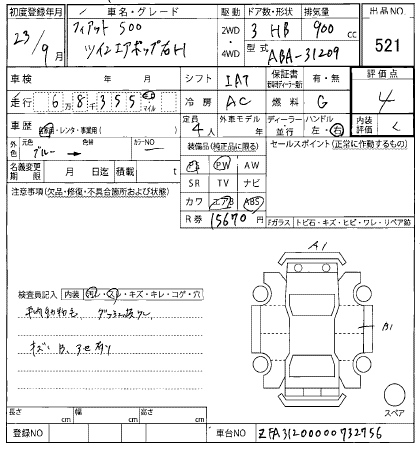 初度登録年月 車名・グレード 駆動 ドア数・形状 排気量 出品NO
23/9月 フィアット 500 ツインエアポップ右H 2WD・4WD 3 HB 900cc 521
型式 ABA-31209
車検 年 月 シフト IAT 保証書 有・無 評価点 4
走行 68355 マイル 冷房 AC 燃料 G
定員 4人 外車モデル 年 ディーラー・並行 ハンドル 左・右 内装評価 C
車歴 自家用・レンタ・事業用( )
外色 元色 ブルー → 色替 カラーNO
名義変更期限 月 日迄 積載 t
装備品(純正品に限る) セールスポイント(正常に作動するもの)
PS PW AW
SR TV ナビ
カワ エアB ABS
R券 15670 円
注意事項(欠品・修復・不具合箇所および状態)
Fガラス トビ石・キズ・ヒビ・ワレ・リペア跡
A1
B1
スペア
検査員記入 内装 汚レ・スレ・キズ・キレ・コゲ・穴
キズ
長さ cm 幅 cm 高さ cm
登録NO 車台NO ZFA31200000732756